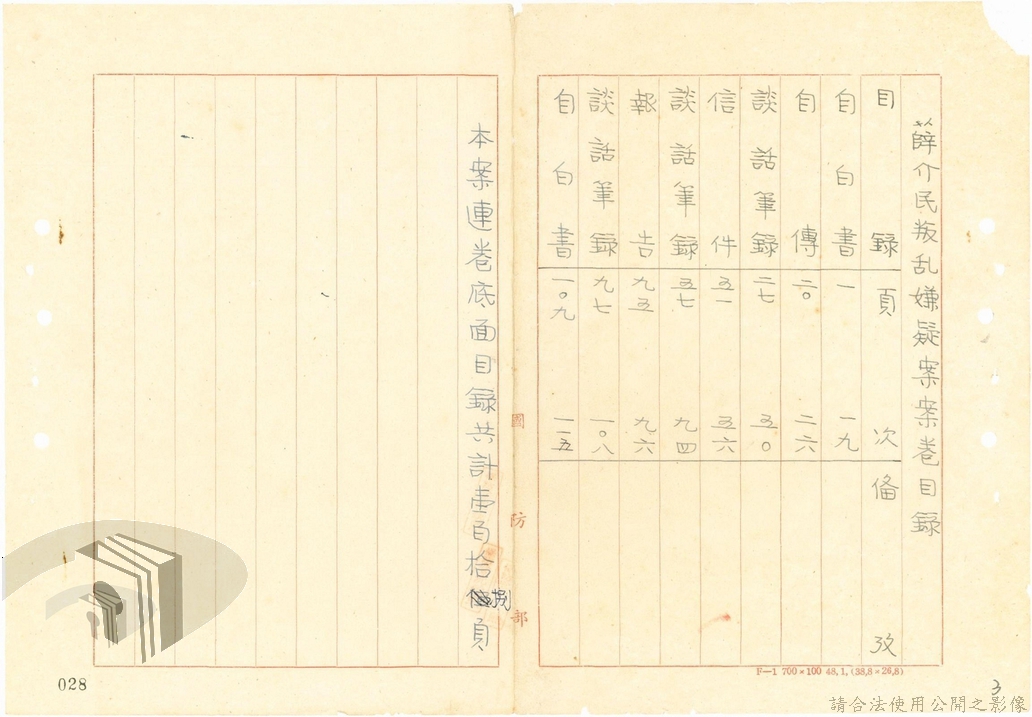 薛介民叛乱嫌疑案案卷目錄
目錄 頁次 備攷
自白書 一 一九
自傳 二〇 二六
談話筆錄 二七 五〇
信件 五一 五六
談話筆錄 五七 九四
報告 九五 九六
談話筆錄 九七 一〇八
自白書 一〇九 一一五
F—1 700×100 48.1.(38.8×26.8)
3
國防部
本案連卷底面目錄共計壹百拾捌頁
028
請合法使用公開之影像